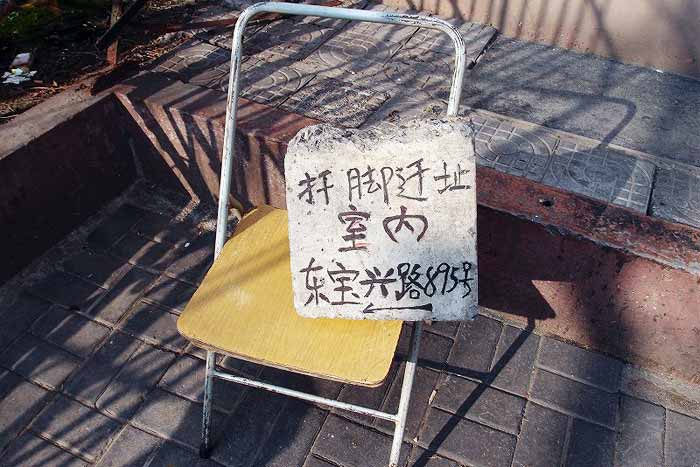 扦脚迁址
室内
东宝兴路895号
←